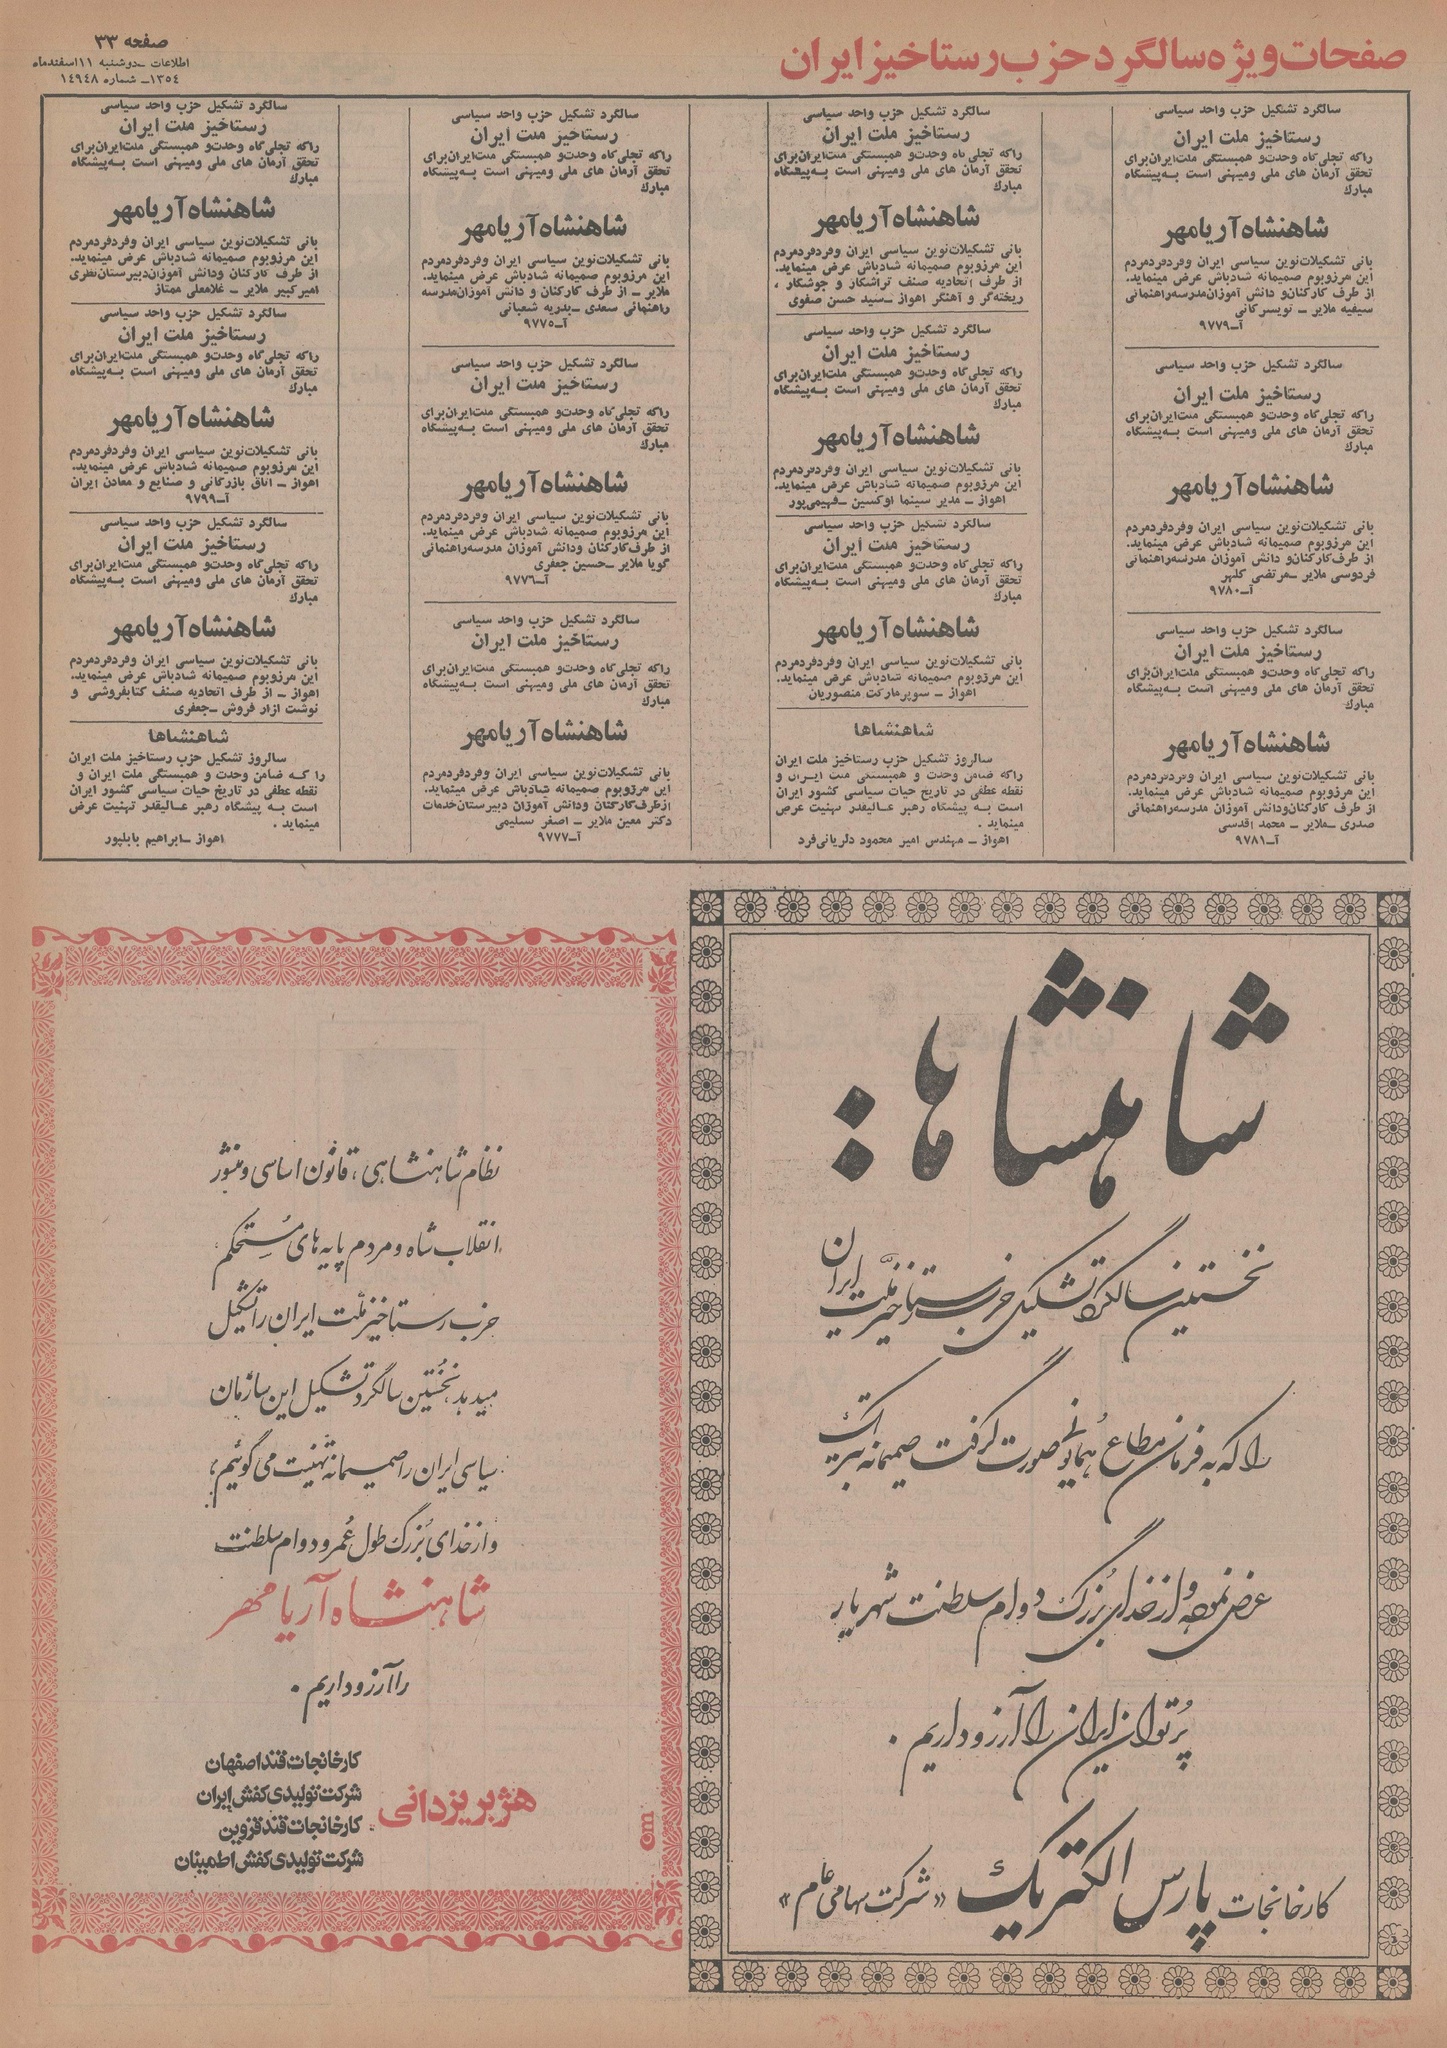 صفحات ویژه سالگرد حزب رستاخیز ایران
صفحه ۳۳
اطلاعات ــ دوشنبه ۱۱ اسفندماه
۱۳۵۴ــ شماره ۱۴۹۴۸
سالگرد تشکیل حزب واحد سیاسی
رستاخیز ملت ایران
راکه تجلی گاه وحدت و همبستگی ملت ایران برای
تحقق آرمان های ملی و میهنی است بـه پیشگاه
مبارك
شاهنشاه آریامهر
بانی تشکیلات نوین سیاسی ایران و فرد فرد مردم
این مرزوبوم صمیمانه شادباش عرض مینماید.
از طرف کارکنان و دانش آموزان مدرسه راهنمائی
سیفیه ملایر ــ تویسرکانی
آــ۹۷۷۹
سالگرد تشکیل حزب واحد سیاسی
رستاخیز ملت ایران
راکه تجلی گاه وحدت و همبستگی ملت ایران برای
تحقق آرمان های ملی و میهنی است بـه پیشگاه
مبارك
شاهنشاه آریامهر
بانی تشکیلات نوین سیاسی ایران و فرد فرد مردم
این مرزوبوم صمیمانه شادباش عرض مینماید.
از طرف کارکنان و دانش آموزان مدرسه راهنمائی
فردوسی ملایر ــ مرتضی کلهر
آــ۹۷۸۰
سالگرد تشکیل حزب واحد سیاسی
رستاخیز ملت ایران
راکه تجلی گاه وحدت و همبستگی ملت ایران برای
تحقق آرمان های ملی و میهنی است بـه پیشگاه
مبارك
شاهنشاه آریامهر
بانی تشکیلات نوین سیاسی ایران و فرد فرد مردم
این مرزوبوم صمیمانه شادباش عرض مینماید.
از طرف کارکنان و دانش آموزان مدرسه راهنمائی
صدری ــ ملایر ــ محمد اقدسی
آــ۹۷۸۱
سالگرد تشکیل حزب واحد سیاسی
رستاخیز ملت ایران
راکه تجلی گاه وحدت و همبستگی ملت ایران برای
تحقق آرمان های ملی و میهنی است بـه پیشگاه
مبارك
شاهنشاه آریامهر
بانی تشکیلات نوین سیاسی ایران و فرد فرد مردم
این مرزوبوم صمیمانه شادباش عرض مینماید.
از طرف اتحادیه صنف تراشکار و جوشکار ،
ریخته گر و آهنگر اهواز ــ سید حسن صفوی
سالگرد تشکیل حزب واحد سیاسی
رستاخیز ملت ایران
راکه تجلی گاه وحدت و همبستگی ملت ایران برای
تحقق آرمان های ملی و میهنی است بـه پیشگاه
مبارك
شاهنشاه آریامهر
بانی تشکیلات نوین سیاسی ایران و فرد فرد مردم
این مرزوبوم صمیمانه شادباش عرض مینماید.
اهواز ــ مدیر سینما اوکسین ــ فهیمی پور
سالگرد تشکیل حزب واحد سیاسی
رستاخیز ملت ایران
راکه تجلی گاه وحدت و همبستگی ملت ایران برای
تحقق آرمان های ملی و میهنی است بـه پیشگاه
مبارك
شاهنشاه آریامهر
بانی تشکیلات نوین سیاسی ایران و فرد فرد مردم
این مرزوبوم صمیمانه شادباش عرض مینماید.
اهواز ــ سوپرمارکت منصوریان
شاهنشاها
سالروز تشکیل حزب رستاخیز ملت ایران
راکه ضامن وحدت و همبستگی ملت ایـران و
نقطه عطفی در تاریخ حیات سیاسی کشور ایران
است به پیشگاه رهبر عالیقدر تهنیت عرض
مینماید .
اهواز ــ مهندس امیر محمود دلریانی فرد
سالگرد تشکیل حزب واحد سیاسی
رستاخیز ملت ایران
راکه تجلی گاه وحدت و همبستگی ملت ایران برای
تحقق آرمان های ملی و میهنی است بـه پیشگاه
مبارك
شاهنشاه آریامهر
بانی تشکیلات نوین سیاسی ایران و فرد فرد مردم
این مرزوبوم صمیمانه شادباش عرض مینماید.
ملایر ــ از طرف کارکنان و دانش آموزان مدرسه
راهنمائی سعدی ــ بدریه شعبانی
آــ۹۷۷۵
سالگرد تشکیل حزب واحد سیاسی
رستاخیز ملت ایران
راکه تجلی گاه وحدت و همبستگی ملت ایران برای
تحقق آرمان های ملی و میهنی است بـه پیشگاه
مبارك
شاهنشاه آریامهر
بانی تشکیلات نوین سیاسی ایران و فرد فرد مردم
این مرزوبوم صمیمانه شادباش عرض مینماید.
از طرف کارکنان ودانش آموزان مدرسه راهنمائی
گویا ملایر ــ حسین جعفری
آــ۹۷۷۶
سالگرد تشکیل حزب واحد سیاسی
رستاخیز ملت ایران
راکه تجلی گاه وحدت و همبستگی ملت ایران برای
تحقق آرمان های ملی و میهنی است بـه پیشگاه
مبارك
شاهنشاه آریامهر
بانی تشکیلات نوین سیاسی ایران و فرد فرد مردم
این مرزوبوم صمیمانه شادباش عرض مینماید.
از طرف کارکنان ودانش آموزان دبیرستان خدمات
دکتر معین ملایر ــ اصغر سلیمی
آــ۹۷۷۷
سالگرد تشکیل حزب واحد سیاسی
رستاخیز ملت ایران
راکه تجلی گاه وحدت و همبستگی ملت ایران برای
تحقق آرمان های ملی و میهنی است بـه پیشگاه
مبارك
شاهنشاه آریامهر
بانی تشکیلات نوین سیاسی ایران و فرد فرد مردم
این مرزوبوم صمیمانه شادباش عرض مینماید.
از طرف کارکنان ودانش آموزان دبیرستان نظری
امیرکبیر ملایر ــ غلامعلی ممتاز
سالگرد تشکیل حزب واحد سیاسی
رستاخیز ملت ایران
راکه تجلی گاه وحدت و همبستگی ملت ایران برای
تحقق آرمان های ملی و میهنی است بـه پیشگاه
مبارك
شاهنشاه آریامهر
بانی تشکیلات نوین سیاسی ایران و فرد فرد مردم
این مرزوبوم صمیمانه شادباش عرض مینماید.
اهواز ــ اتاق بازرگانی و صنایع و معادن ایران
آــ۹۷۹۹
سالگرد تشکیل حزب واحد سیاسی
رستاخیز ملت ایران
راکه تجلی گاه وحدت و همبستگی ملت ایران برای
تحقق آرمان های ملی و میهنی است بـه پیشگاه
مبارك
شاهنشاه آریامهر
بانی تشکیلات نوین سیاسی ایران و فرد فرد مردم
این مرزوبوم صمیمانه شادباش عرض مینماید.
اهواز ــ از طرف اتحادیه صنف کتابفروشی و
نوشت ازار فروش ــ جعفری
شاهنشاها
سالروز تشکیل حزب رستاخیز ملت ایران
را کـه ضامن وحدت و همبستگی ملت ایران و
نقطه عطفی در تاریخ حیات سیاسی کشور ایران
است بـه پیشگاه رهبر عـالیقدر تهنیت عرض
مینماید .
اهواز ــ ابراهیم بابلپور
شاهنشاها :
نخستین سالگرد تشکیل حزب رستاخیز ملت ایران
را که به فرمان مطاع همایونی صورت گرفت صمیمانه تبریک
عرض نموده و از خدای بزرگ دوام سلطنت شهریار
پرتوان ایران را آرزو داریم .
کارخانجات پارس الکتریک «شرکت سهامی عام»
نظام شاهنشاهی ، قانون اساسی و منشور
انقلاب شاه و مردم پایه های مستحکم
حزب رستاخیز ملت ایران را تشکیل
میدهد، نخستین سالگرد تشکیل این سازمان
سیاسی ایران را صمیمانه تهنیت می گوئیم ؛
و از خدای بزرگ طول عمر و دوام سلطنت
شاهنشاه آریامهر
را آرزو داریم .
هژبر یزدانی
کارخانجات قند اصفهان
شرکت تولیدی کفش ایران
کارخانجات قند قزوین
شرکت تولیدی کفش اطمینان